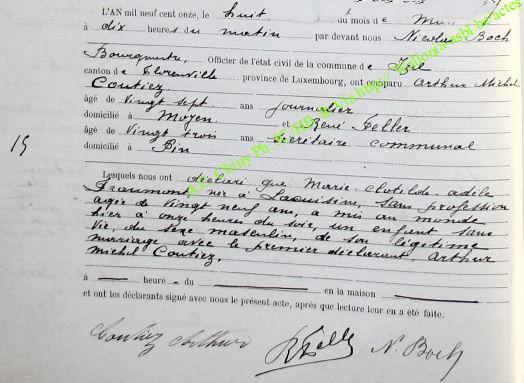 L'AN mil neuf cent onze, le huit du mois de
à dix heures du matin par devant nous Nicolas Boch
Bourgmestre, Officier de l'état civil de la commune de Izel
canton de Florenville province de Luxembourg, ont comparu Arthur Michel
Coutiez
âgé de vingt sept ans journalier
domicilié à Moyen et René Feller
âgé de vingt trois ans Secrétaire communal
domicilié à Pin
15
Lesquels nous ont déclaré que Marie Clotilde Adèle
Fraumont, née à Lacuisine, sans profession
agée de vingt neuf ans, a mis au monde
hier à onze heures du soir, un enfant sans
vie, du sexe masculin, de son légitime
marriage avec le premier déclarant, Arthur
Michel Coutiez.
à heure du en la maison
et ont les déclarants signé avec nous le présent acte, après que lecture leur en a été faite.
Coutiez Arthur RFeller N. Boch